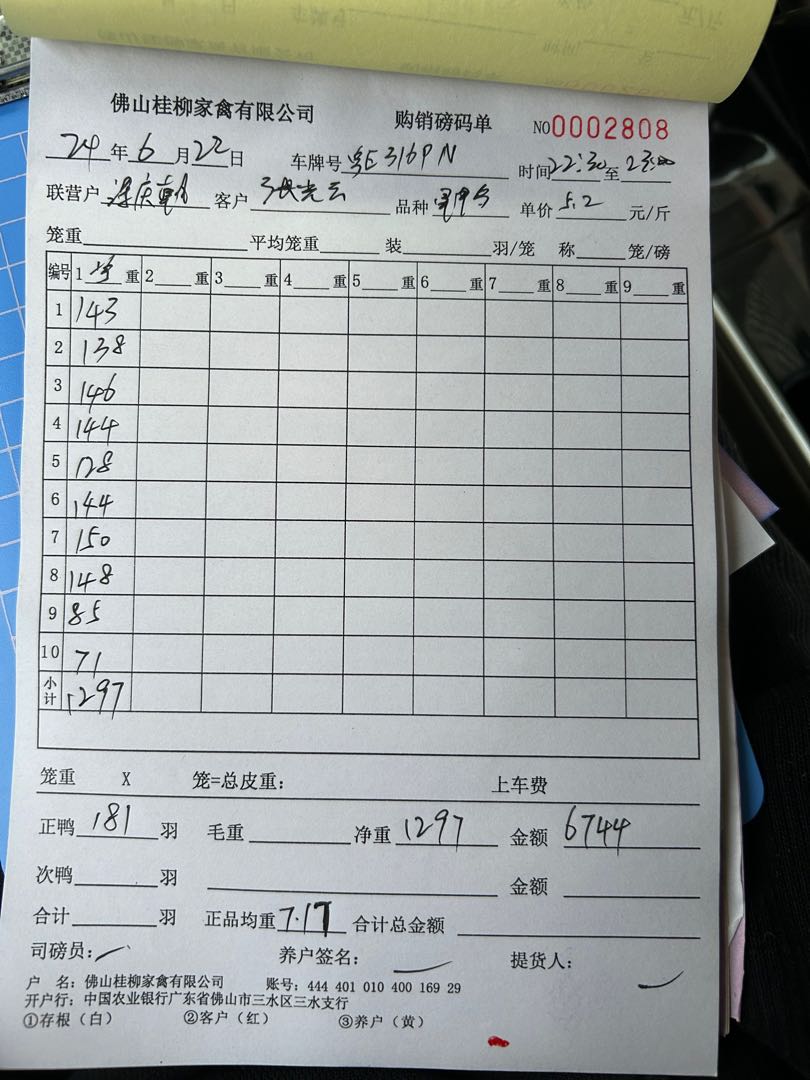 佛山桂柳家禽有限公司 购销磅码单 NO0002808
24年6月22日 车牌号粤E316PN 时间22:30至23:00
联营户 客户 张光云 品种 单价5.2元/斤
笼重 平均笼重 装 羽/笼 称 笼/磅
编号 1净重 2 重 3 重 4 重 5 重 6 重 7 重 8 重 9 重
1 143
2 138
3 146
4 144
5 128
6 144
7 150
8 148
9 85
10 71
小计 1297
笼重 X 笼=总皮重: 上车费
正鸭181羽 毛重 净重1297 金额6744
次鸭 羽 金额
合计 羽 正品均重7.17 合计总金额
司磅员: 养户签名: 提货人:
户 名: 佛山桂柳家禽有限公司 账号: 444 401 010 400 169 29
开户行: 中国农业银行广东省佛山市三水区三水支行
①存根（白） ②客户（红） ③养户（黄）